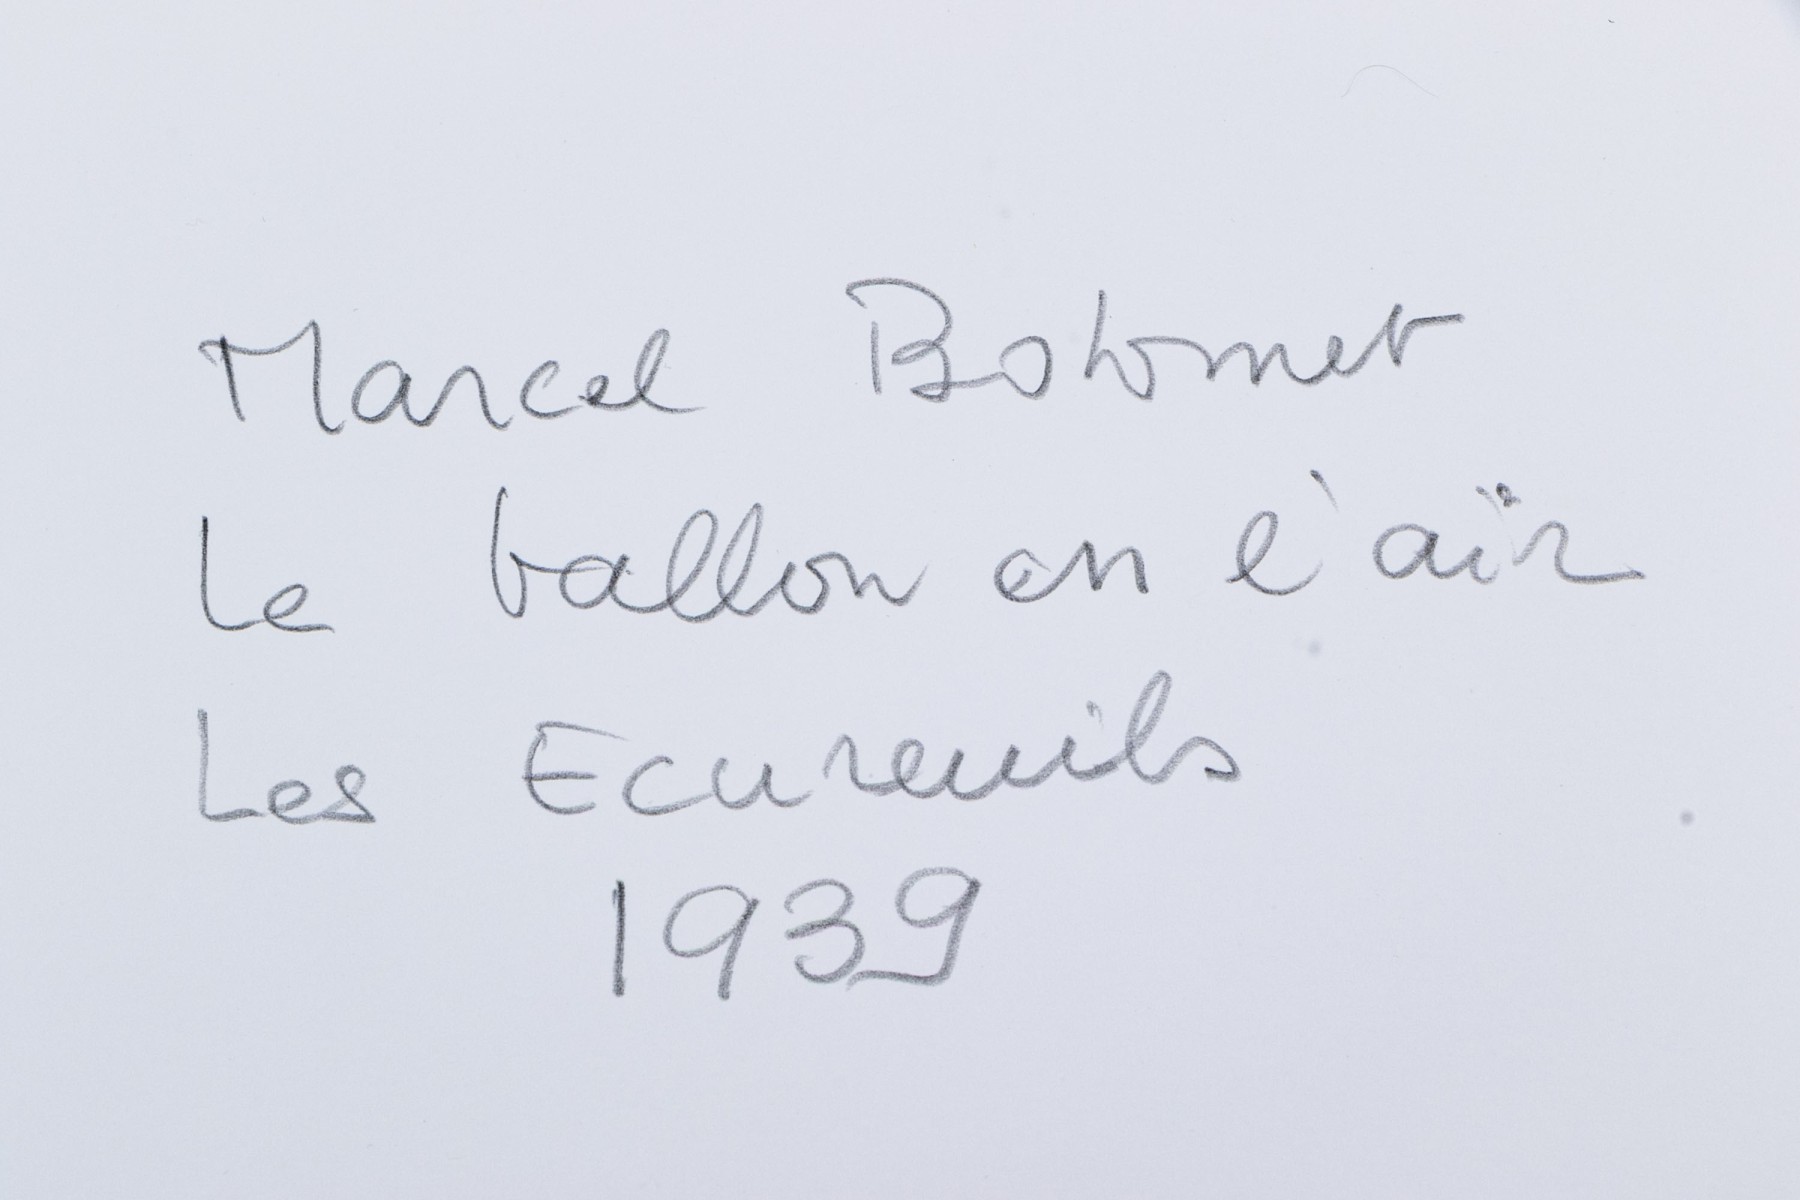 Marcel Bolomet
Le ballon en l'air
Les Ecureuils
1939